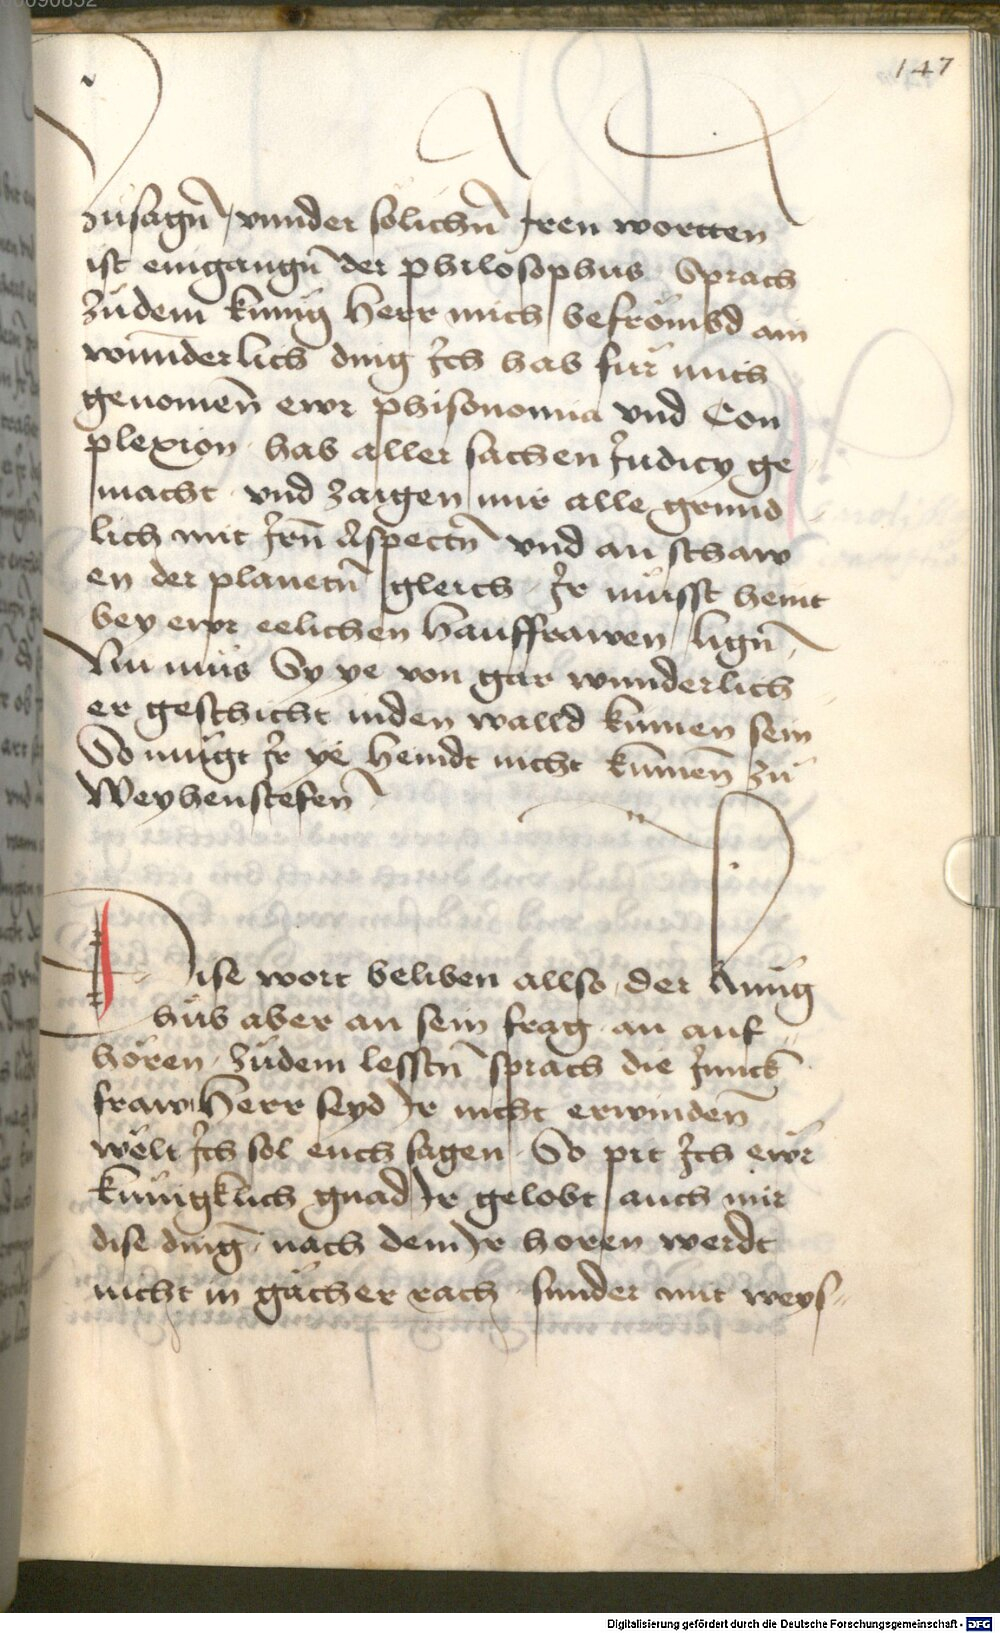 147
zusagñ / vnnder sölichñ Jren wortten
ist eingangñ der philosophus Sprach
zůdem kunig Herr mich befrömbd ain
wunnderlich ding Ich hab fur mich
genomeñ ewr phisonomia vnd Con
plexion · hab aller sachen Iudicy ge
macht · vnd zaigen mir alle grund
lich mit Irñ Aspectñ vnd an schaw
en der planetñ gleich · Ir müsst heint
bey ewr eelichen Hausfrawen ligñ /
Nu můs Sy ye von gar wunderlich
er geschicht inden walld kumen sein
So mügt Ir ye heindt nicht kumeñ zu
Weyhenstefeñ
Dise wort beliben allso · der kunig
hůb aber an sein frag · an auf
hören · Zůdem lesstñ sprach die Junck
fraw Herr seyd Ir nicht erwindeñ
welt Ich sol euch sagen · So pit Ich ewr
kunigklich gnad Ir gelobt auch mir
dise ding · nach dem Ir horen werdt
nicht in gächer rach · sunder mit weys=
Digitalisierung gefördert durch die Deutsche Forschungsgemeinschaft - DFG